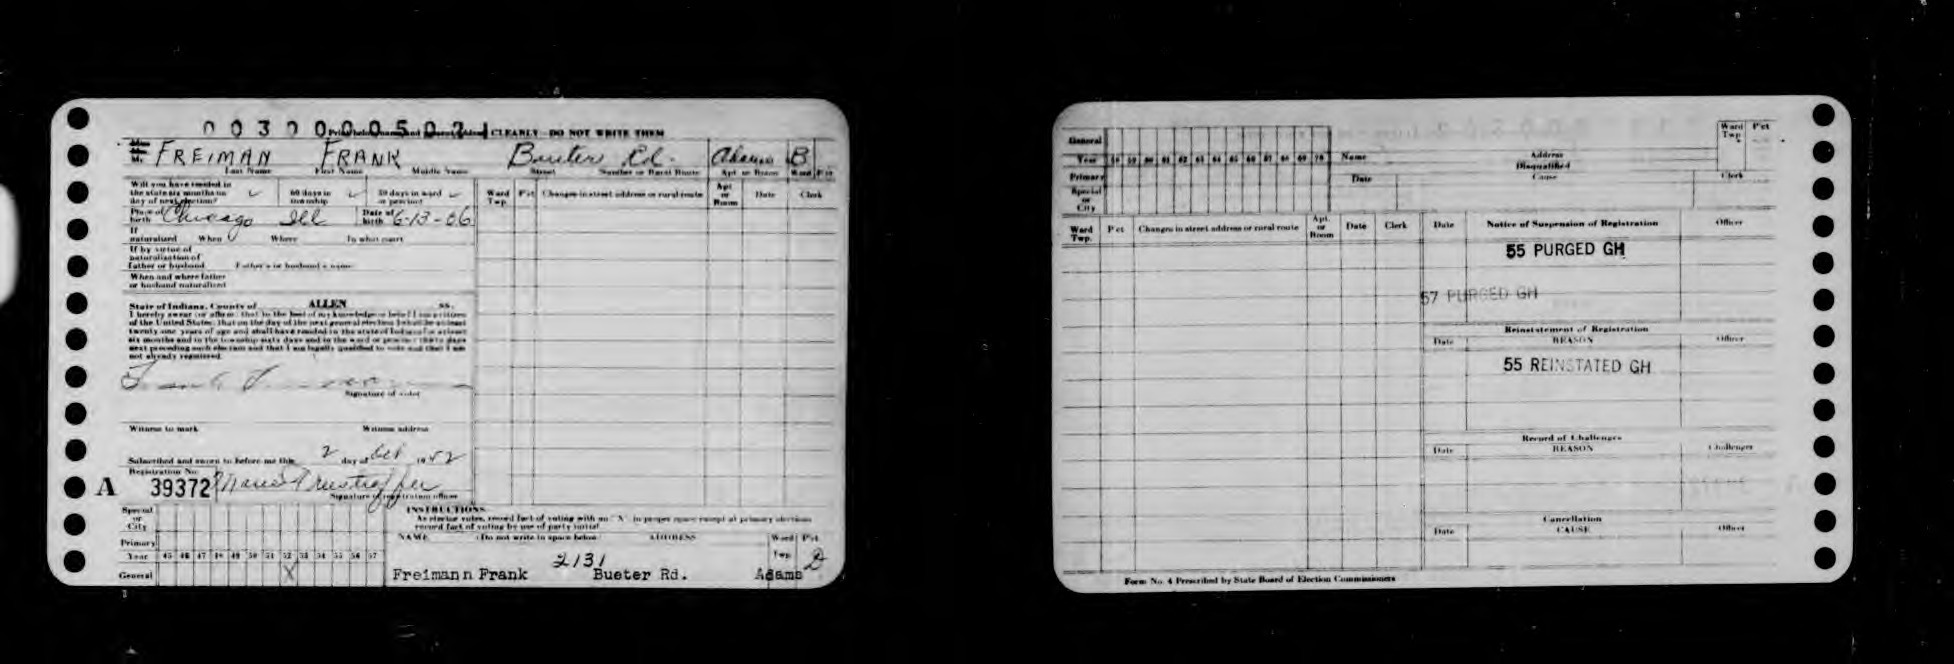 0030000502 CLEARLY - DO NOT WRITE THEM
FREIMAN FRANK Bueter Rd. Adams B
Last Name First Name Middle Name Street Number or Rural Route Apt or Room Ward P'ct
Will you have resided in the state six months on day of next election? ✓ 60 days in township ✓ 30 days in ward or precinct ✓
Ward Twp. P'ct Changes in street address or rural route Apt or Room Date Clerk
Place of birth Chicago Ill Date of birth 6-13-06
If naturalized When Where In what court
If by virtue of naturalization of Father or husband Father's or husband's name
When and where father or husband naturalized
State of Indiana, County of ALLEN ss.
I hereby swear (or affirm) that to the best of my knowledge or belief I am a citizen
of the United States; that on the day of the next general election I shall be at least
twenty one years of age and shall have resided in the state of Indiana for at least
six months and in the township sixty days and in the ward or precinct thirty days
next preceding such election and that I am legally qualified to vote and that I am
not already registered.
Frank
Signature of voter
Witness to mark Witness address
Subscribed and sworn to before me this 2 day of Oct 1952
Registration No.
A 39372 Marie
Signature of registration officer
Special or City
Primary
Year 45 46 47 48 49 50 51 52 53 54 55 56 57
General X
INSTRUCTIONS
As elector votes, record fact of voting with an "X" in proper space except at primary elections
record fact of voting by use of party initial.
NAME (Do not write in space below) ADDRESS Ward Twp. P'ct
2131
Freimann Frank Bueter Rd. Adams D
General
Year 58 59 60 61 62 63 64 65 66 67 68 69 70
Primary
Special or City
Name Address Ward Twp P'ct
Disqualified
Date Cause Clerk
Ward Twp. P'ct Changes in street address or rural route Apt. or Room Date Clerk
Date Notice of Suspension of Registration Officer
55 PURGED GH
57 PURGED GH
Reinstatement of Registration
Date REASON Officer
55 REINSTATED GH
Record of Challenges
Date REASON Challenger
Cancellation
Date CAUSE Officer
Form No. 4 Prescribed by State Board of Election Commissioners